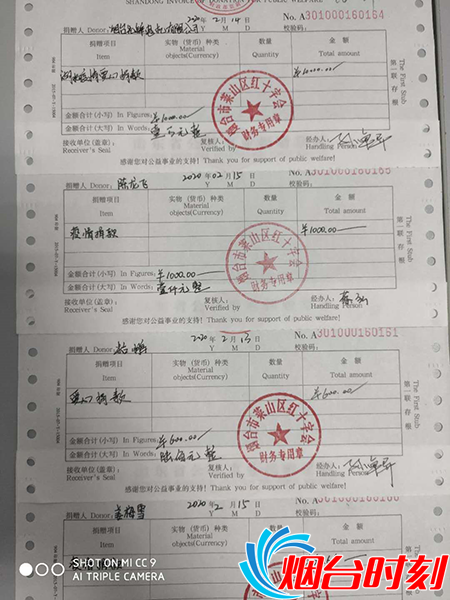 SHANDONG INVOICE OF DONATION FOR PUBLIC WELFARE
No. A301000160164
捐赠人 Donor: 2020 年 2 月 14 日 校验码:
Y M D
捐赠项目 Item 实物（货币）种类 Material objects(Currency) 数量 Quantity 金额 Total amount
捐款
金额合计(小写) In Figures
金额合计(大写) In Words
接收单位(盖章): Receiver's Seal 复核人: Verified by 经办人: Handling Person
感谢您对公益事业的支持! Thank you for support of public welfare!
The First Stub
第一联 存根
烟台市莱山区红十字会
财务专用章
No. A301000160165
捐赠人 Donor: 陈龙飞 2020 年 02 月 15 日 校验码:
Y M D
捐赠项目 Item 实物（货币）种类 Material objects(Currency) 数量 Quantity 金额 Total amount
疫情捐款 ¥1000.00
金额合计(小写) In Figures ¥1000.00
金额合计(大写) In Words 壹仟元整
接收单位(盖章): Receiver's Seal 复核人: Verified by 经办人: Handling Person
感谢您对公益事业的支持! Thank you for support of public welfare!
The First Stub
第一联 存根
烟台市莱山区红十字会
财务专用章
No. A301000160161
捐赠人 Donor: 2020 年 2 月 15 日 校验码:
Y M D
捐赠项目 Item 实物（货币）种类 Material objects(Currency) 数量 Quantity 金额 Total amount
捐款 ¥600.00
金额合计(小写) In Figures ¥600.00
金额合计(大写) In Words 陆佰元整
接收单位(盖章): Receiver's Seal 复核人: Verified by 经办人: Handling Person
感谢您对公益事业的支持! Thank you for support of public welfare!
The First Stub
第一联 存根
烟台市莱山区红十字会
财务专用章
捐赠人 Donor: 2020 年 2 月 15 日 校验码:
Y M D
捐赠项目 Item 实物（货币）种类 Material objects(Currency) 数量 Quantity 金额 Total amount
The First Stub
SHOT ON MI CC 9
AI TRIPLE CAMERA
烟台时刻